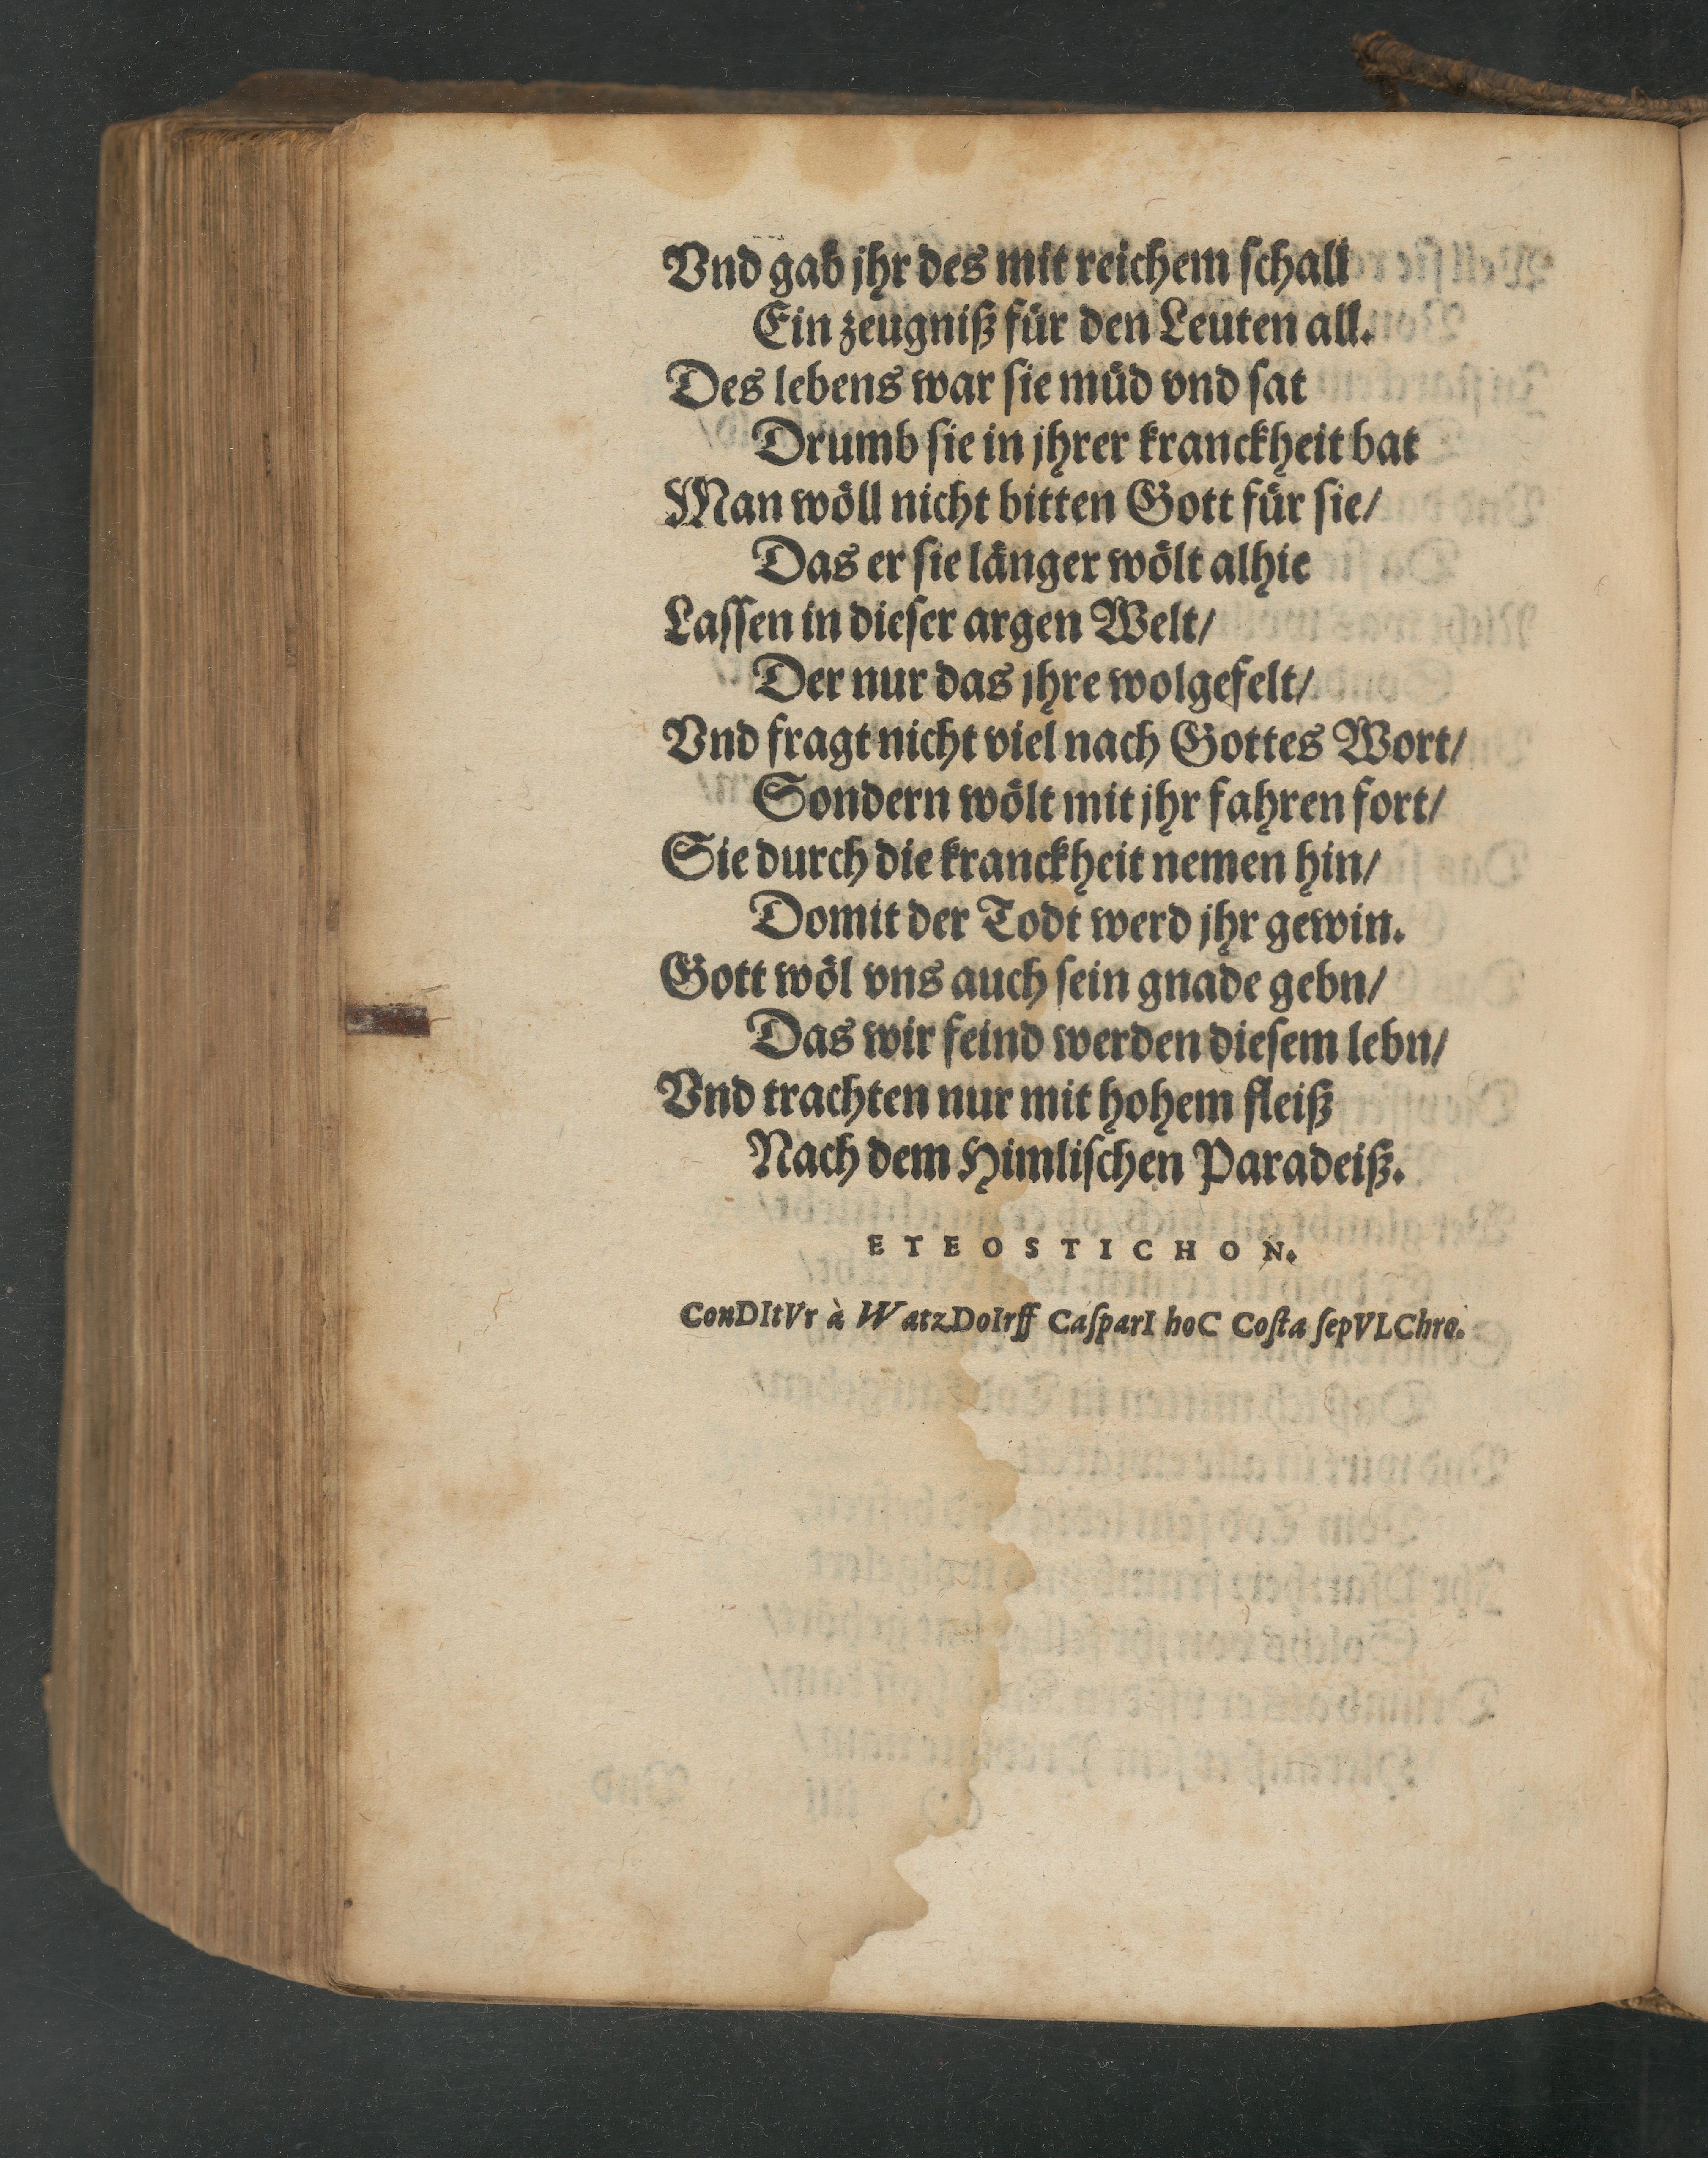 Vnd gab jhr des mit reichem ſchall
Ein zeugniß für den Leuten all.
Des lebens war ſie müd vnd ſat
Drumb ſie in jhrer kranckheit bat
Man wöll nicht bitten Gott für ſie/
Das er ſie länger wölt alhie
Laſſen in dieſer argen Welt/
Der nur das jhre wolgefelt/
Vnd fragt nicht viel nach Gottes Wort/
Sondern wölt mit jhr fahren fort/
Sie durch die kranckheit nemen hin/
Domit der Todt werd jhr gewin.
Gott wöl vns auch ſein gnade gebn/
Das wir feind werden dieſem lebn/
Vnd trachten nur mit hohem fleiß
Nach dem Himliſchen Paradeiß.
ETEOSTICHON.
ConDItVr à WatzDoIrff CaſparI hoC Coſta ſepVLChro.